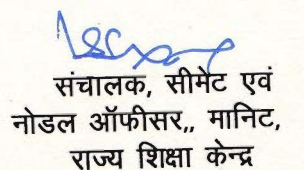 संचालक, सीमेट एवं
नोडल ऑफीसर,, मानिट,
राज्य शिक्षा केन्द्र